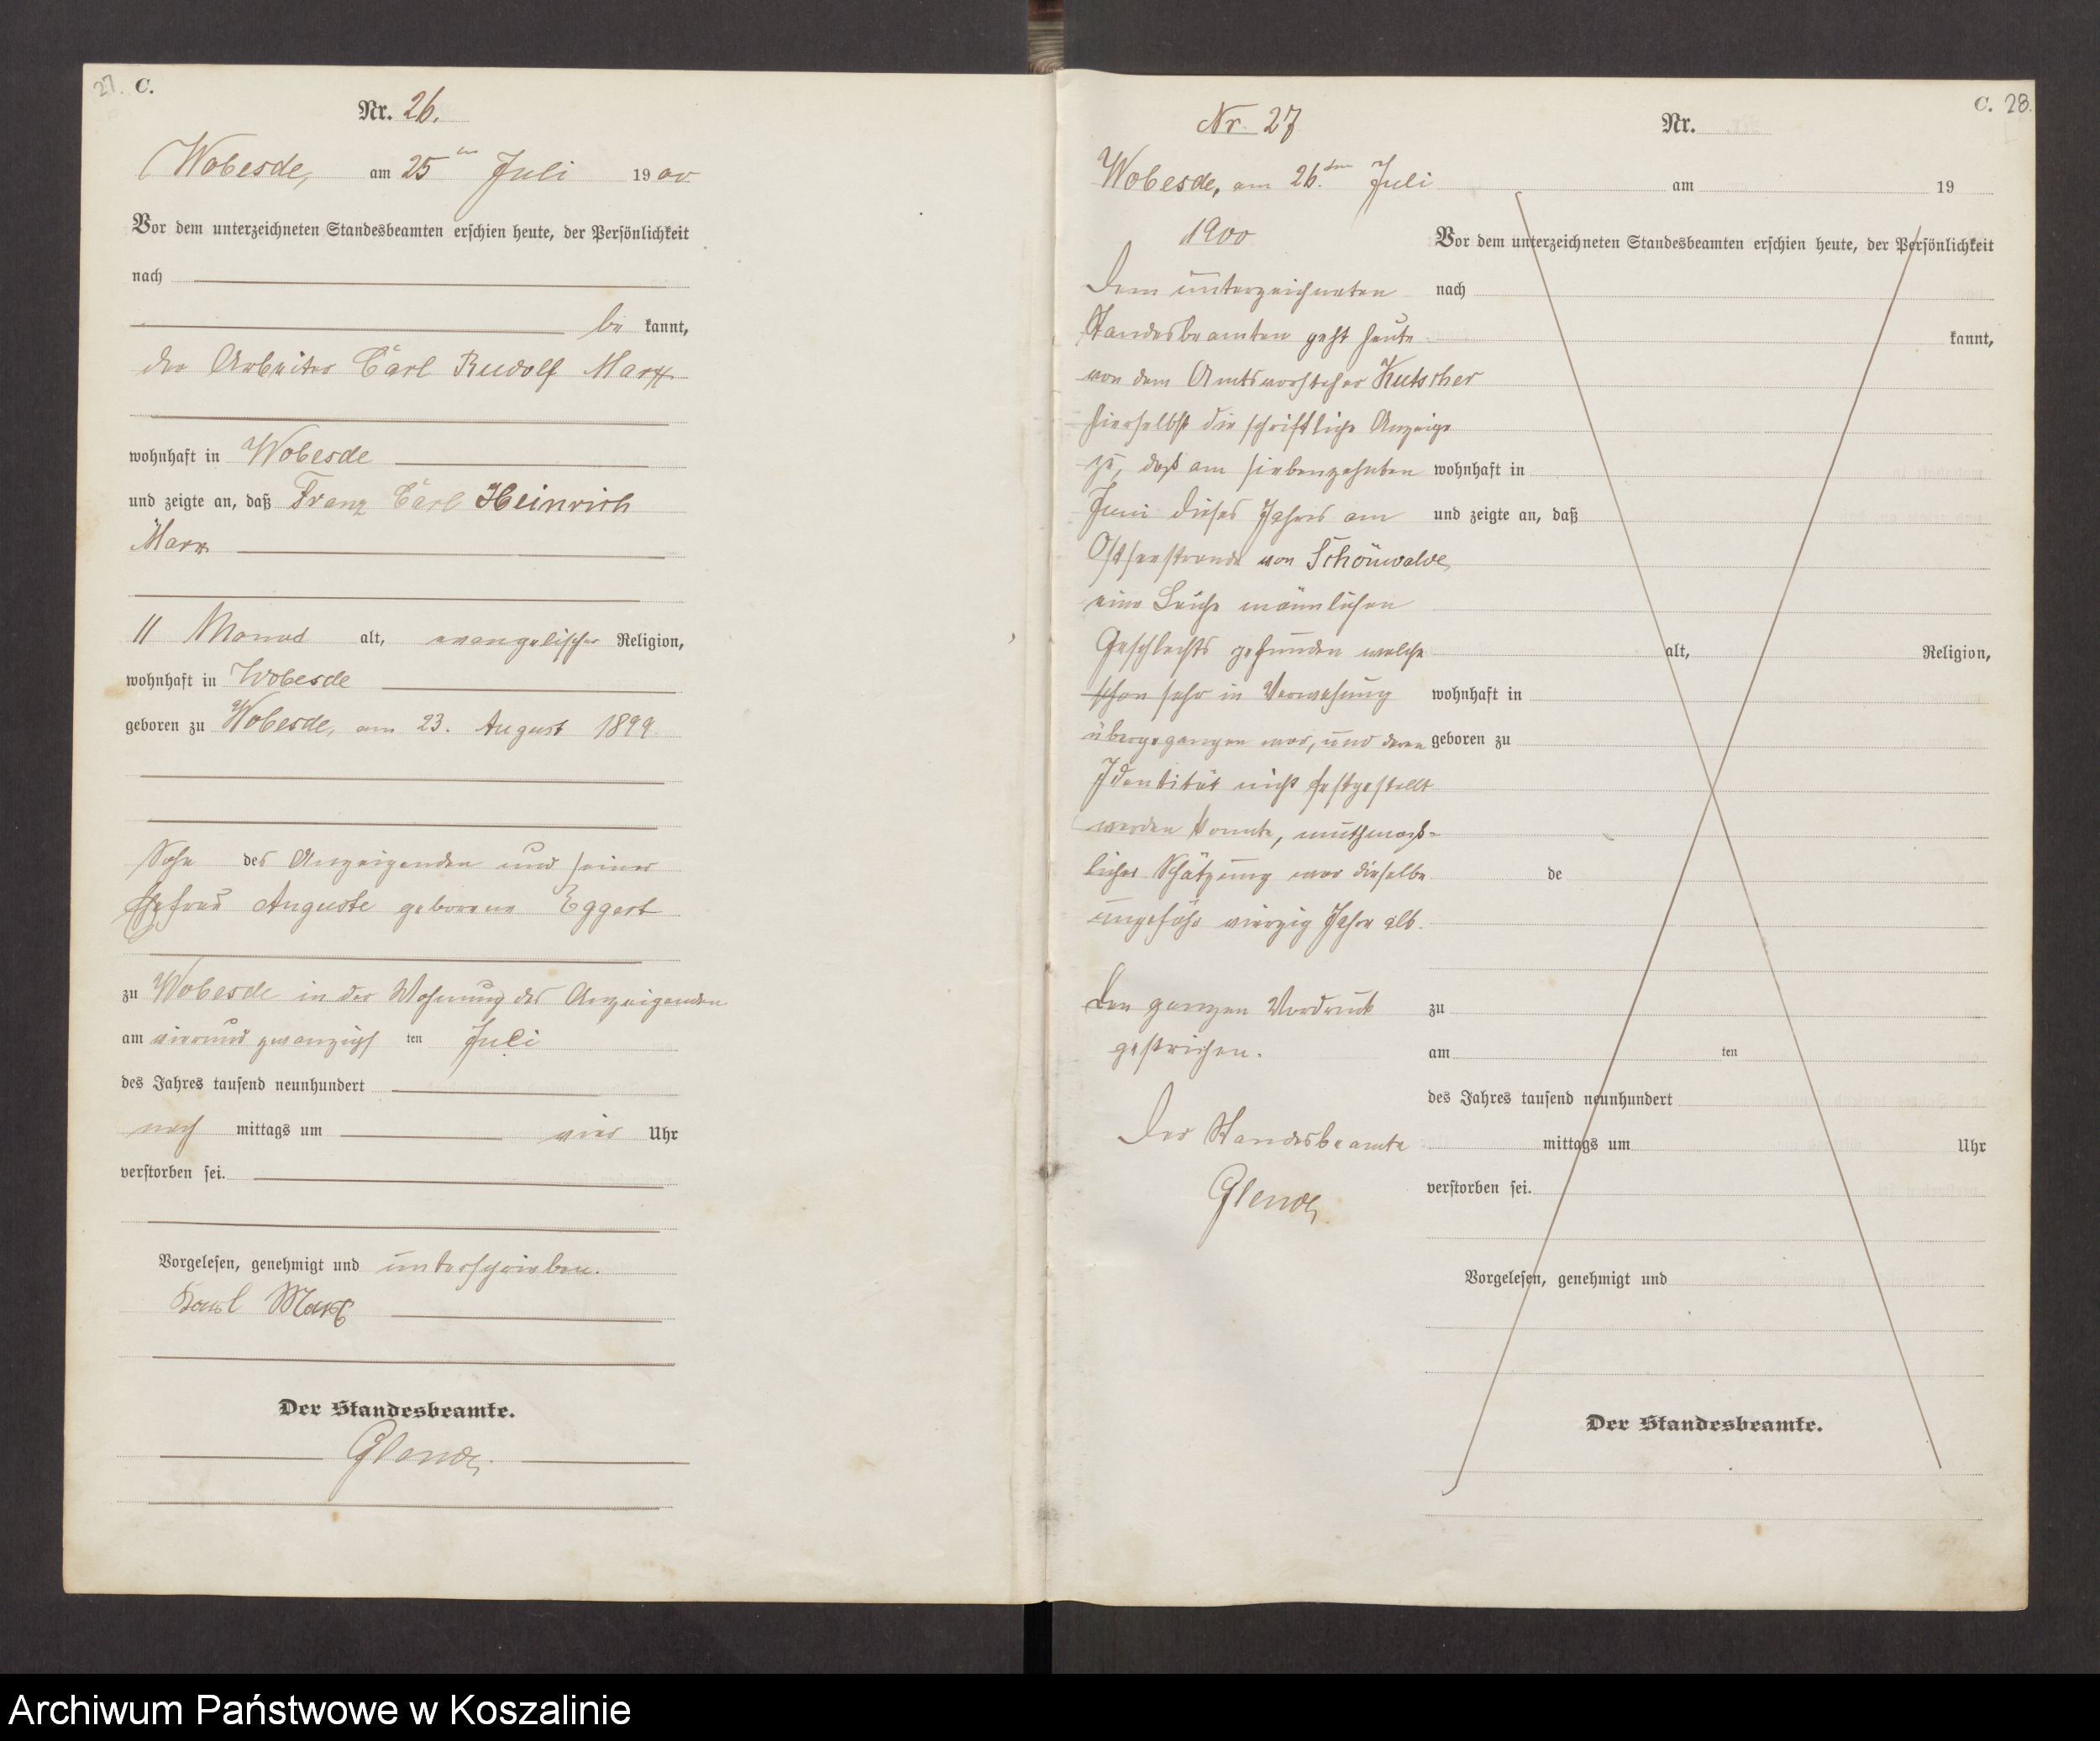 27. C.
Nr. 26.
Wobesde, am 25ten Juli 1900
Vor dem unterzeichneten Standesbeamten erschien heute, der Persönlichkeit
nach
be kannt,
der Arbeiter Carl Rudolf Marx
wohnhaft in Wobesde
und zeigte an, daß Franz Carl Heinrich
Marx
11 Monat alt, evangelischer Religion,
wohnhaft in Wobesde
geboren zu Wobesde, am 23. August 1899
Sohn des Anzeigenden und seiner
Ehefrau Auguste geborene Eggert
zu Wobesde in der Wohnung des Anzeigenden
am vierundzwanzigs ten Juli
des Jahres tausend neunhundert
nach mittags um vier Uhr
verstorben sei.
Vorgelesen, genehmigt und unterschrieben.
Karl Marx
Der Standesbeamte.
Glende
C. 28.
Nr. 27
Wobesde, am 26.ten Juli
1900
Dem unterzeichneten
Standesbeamten geht heute
von dem Amtsvorsteher Kutscher
hierselbst die schriftliche Anzeige
zu, daß am siebenzehnten
Juni dieses Jahres am
Ostseestrande von Schönwalde,
eine Leiche männlichen
Geschlechts gefunden welche
schon sehr in Verwesung
übergegangen war, und deren
Identität nicht festgestellt
werden konnte, muthmaß-
licher Schätzung war dieselbe
ungefähr vierzig Jahre alt.
Den ganzen Vordruck
gestrichen.
Der Standesbeamte
Glende
Nr.
am 19
Vor dem unterzeichneten Standesbeamten erschien heute, der Persönlichkeit
nach
kannt,
wohnhaft in
und zeigte an, daß
alt, Religion,
wohnhaft in
geboren zu
de
zu
am ten
des Jahres tausend neunhundert
mittags um Uhr
verstorben sei.
Vorgelesen, genehmigt und
Der Standesbeamte.
Archiwum Państwowe w Koszalinie